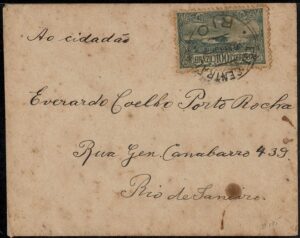 Ao cidadão
RIO
CENTRAL
Everardo Coelho Porto Rocha
Rua Gen. Canabarro 439
Rio de Janeiro